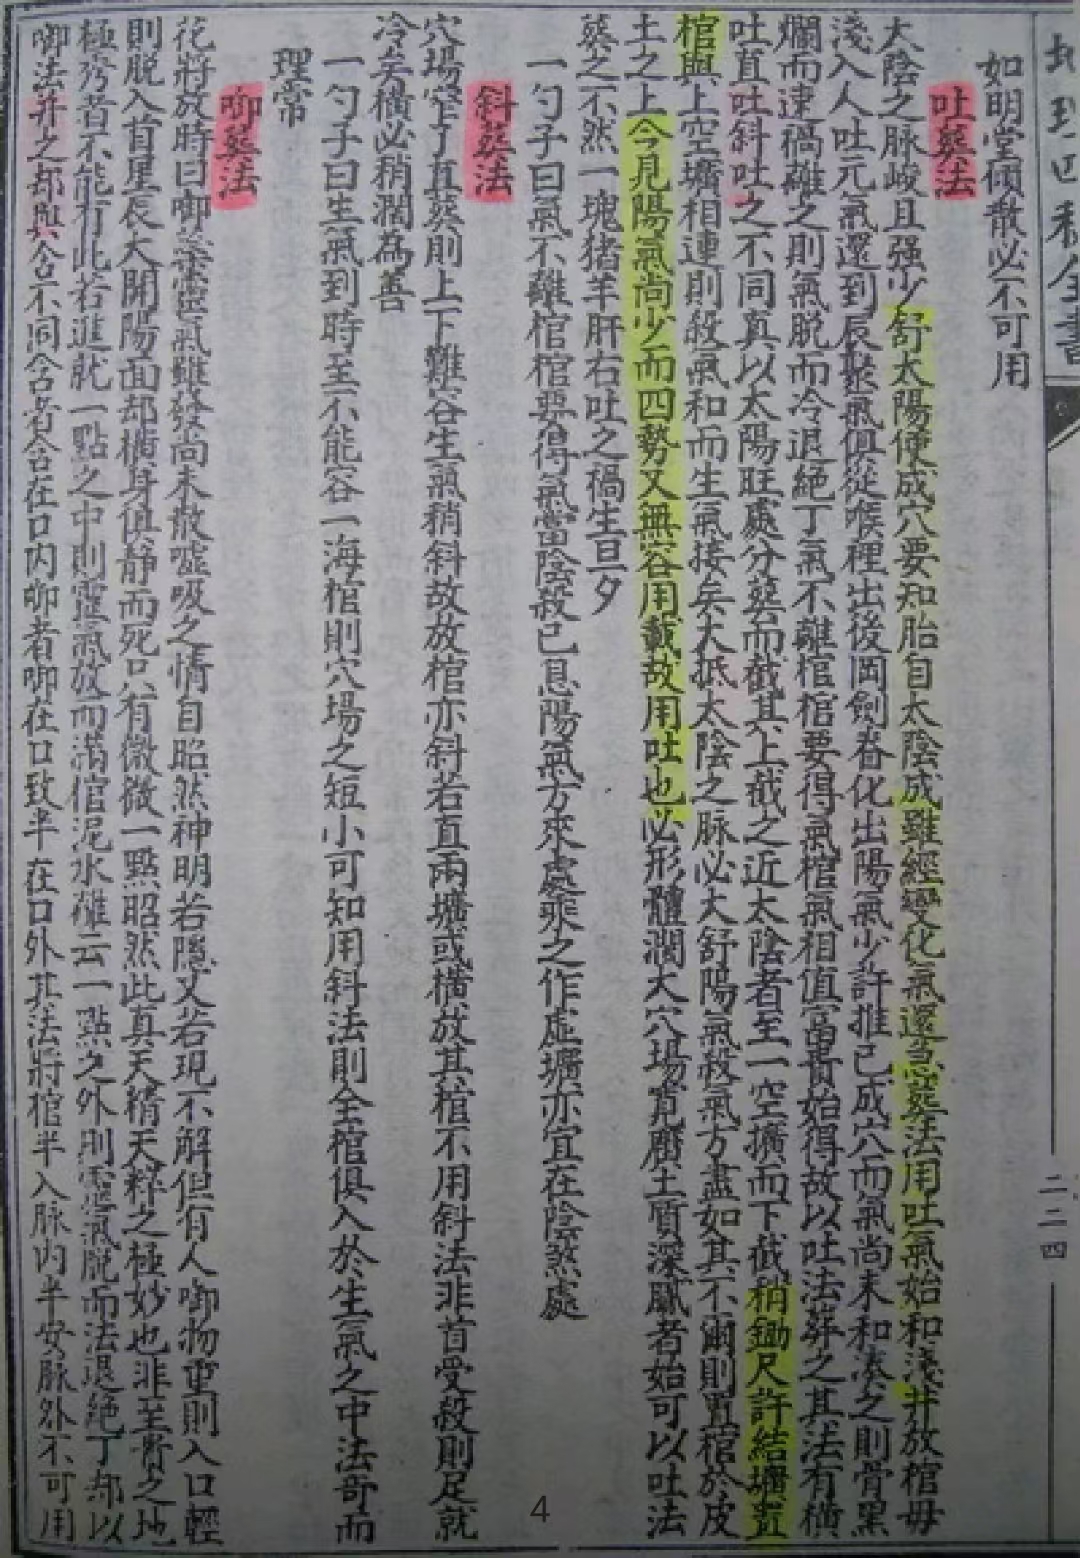 地理四秘全書
二二四
如明堂傾散必不可用
吐葬法
太陰之脉峻且强少舒太陽便成穴要知胎自太陰成雖經變化氣還急葬法用吐氣始和淺井放棺毋
淺入人吐元氣還到辰聚氣俱從喉裡出後岡劍脊化出陽氣少許推已成穴而氣尚未和湊之則骨黑
爛而速禍離之則氣脱而冷退絶丁氣不離棺棺要得氣棺氣相值富貴始得故以吐法葬之其法有橫
吐直吐斜吐之不同真以太陽旺處分葬而截其上截之近太陰者至一空壙而下截稍鋤尺許結壙置
棺與上空壙相連則殺氣和而生氣接矣大抵太陰之脉必大舒陽氣殺氣方盡如其不爾則置棺於皮
土之上今見陽氣尚少而四勢又無容用載故用吐也必形體濶大穴場寬厝土質深膩者始可以吐法
葬之不然一塊猪羊肝右吐之禍生旦夕
一勺子曰氣不離棺棺要得氣當陰殺已息陽氣方來處乘之作虛壙亦宜在陰煞處
斜葬法
穴場窄了直葬則上下難容生氣稍斜故放棺亦斜若直兩壙或橫放其棺不用斜法非首受殺則足就
冷矣橫必稍濶為善
一勺子曰生氣到時至不能容一海棺則穴場之短小可知用斜法則全棺俱入於生氣之中法奇而
理常
啣葬法
花將放時曰啣葬靈氣雖發尚未散噓吸之情自昭然神明若隱又若現不解但有人啣物重則入口輕
則脱入首星辰大開陽面却橫身俱靜而死只有微微一點昭然此真天精天粹之極妙也非至貴之地
極秀者不能有此若進就一點之中則靈氣放而滿棺泥水離云一點之外則靈氣脱而法退絶丁却以
啣法葬之却與含不同含者含在口内啣者啣在口致半在口外其法將棺半入脉内半安脉外不可用
4